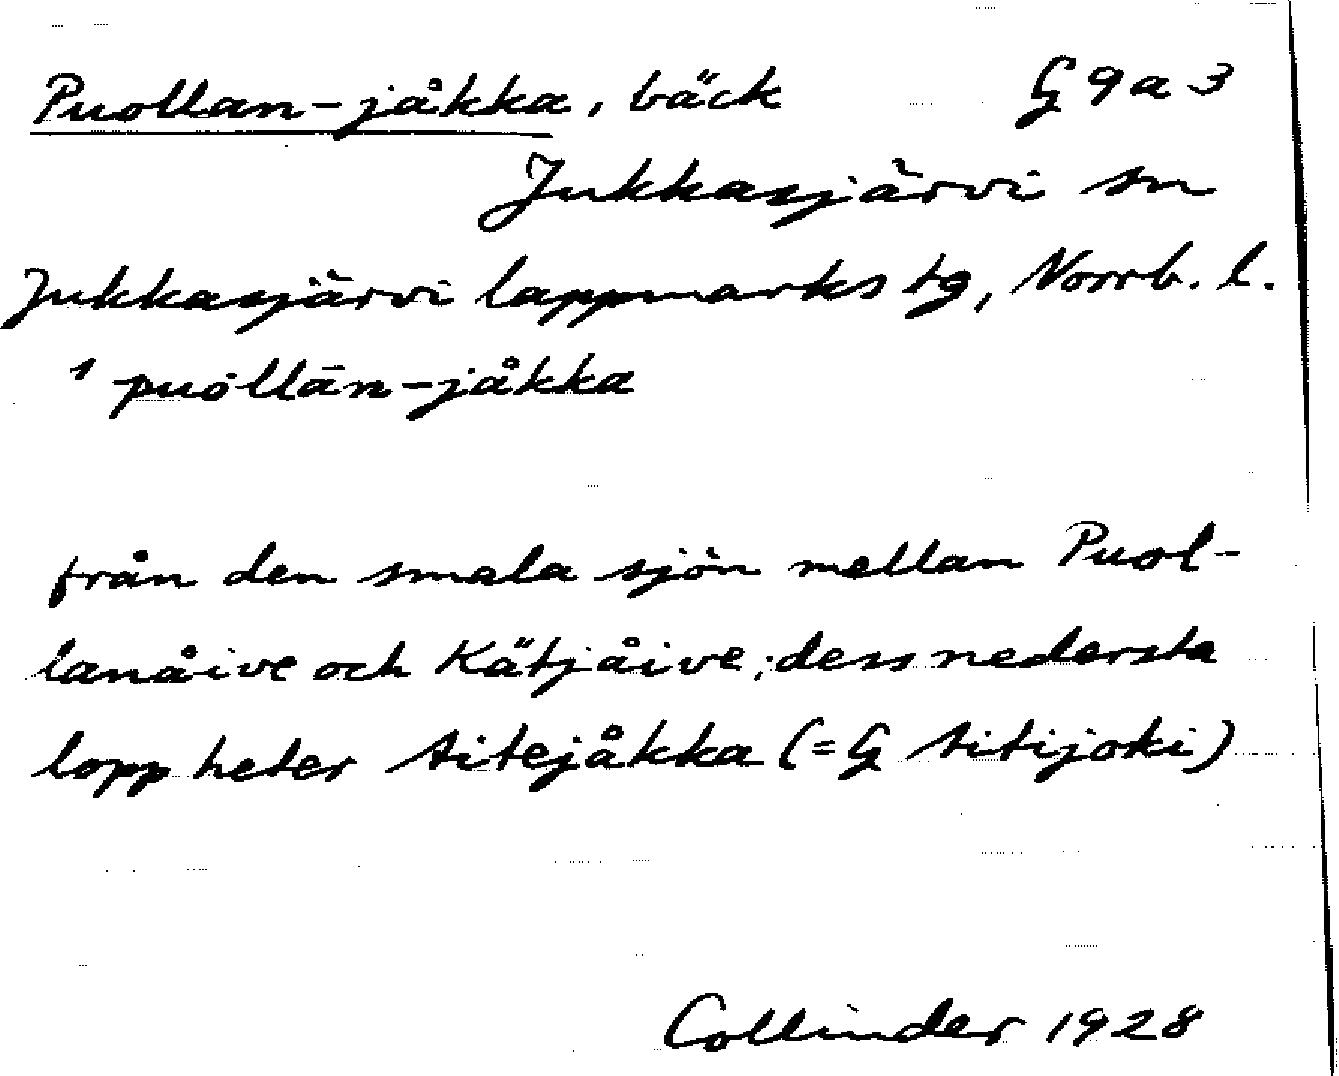 Puollan-jåkka, bäck G 9 a 3
Jukkasjärvi sn
Jukkasjärvi lappmarks tg, Norrb. l.
1 puollān-jåkka
från den smala sjön mellan Puol-
lanåive och Kätjåive; dess nedersta
lopp heter titejåkka (= G titijoki)
Collinder 1928